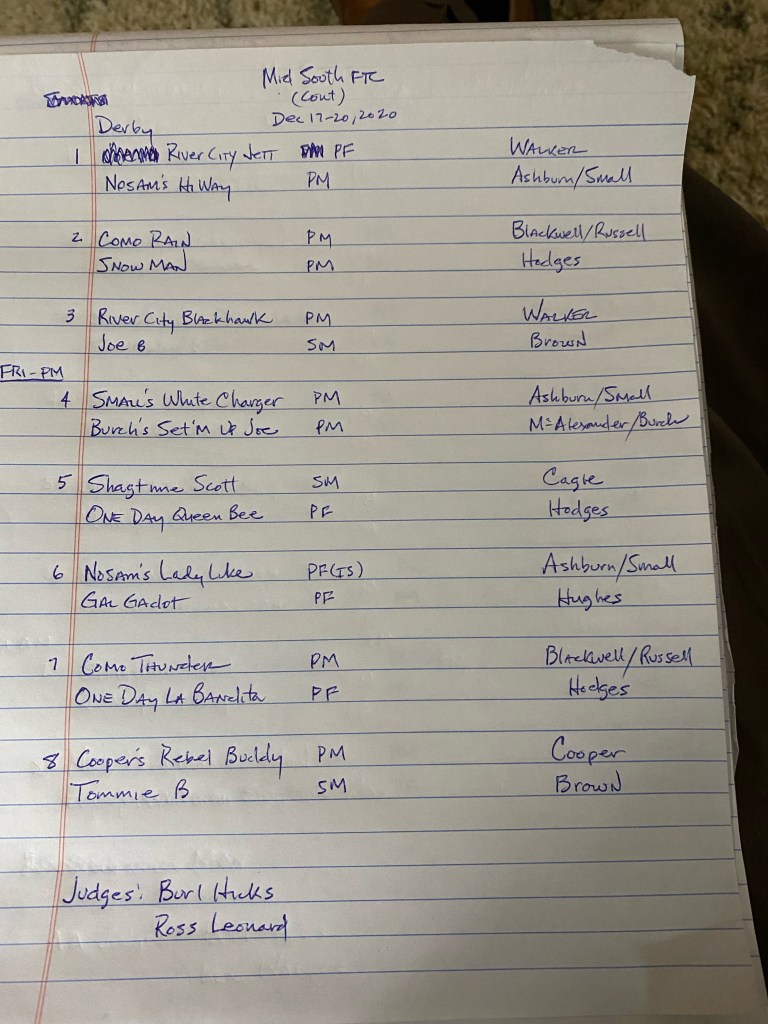 Mid South FTC
(Cont)
Dec 17-20, 2020
Derby
1 River City Jett PF Walker
Nosam's Hi Way PM Ashburn/Small
2 Como Rain PM Blackwell/Russell
Snow Man PM Hodges
3 River City Blackhawk PM Walker
Joe B SM Brown
FRI-PM
4 Small's White Charger PM Ashburn/Small
Burch's Set'm Up Joe PM McAlexander/Burch
5 Shagtime Scott SM Cagle
One Day Queen Bee PF Hodges
6 Nosam's Lady Like PF(IS) Ashburn/Small
Gal Gadot PF Hughes
7 Como Thunder PM Blackwell/Russell
One Day La Bandita PF Hodges
8 Cooper's Rebel Buddy PM Cooper
Tommie B SM Brown
Judges: Burl Hicks
Ross Leonard